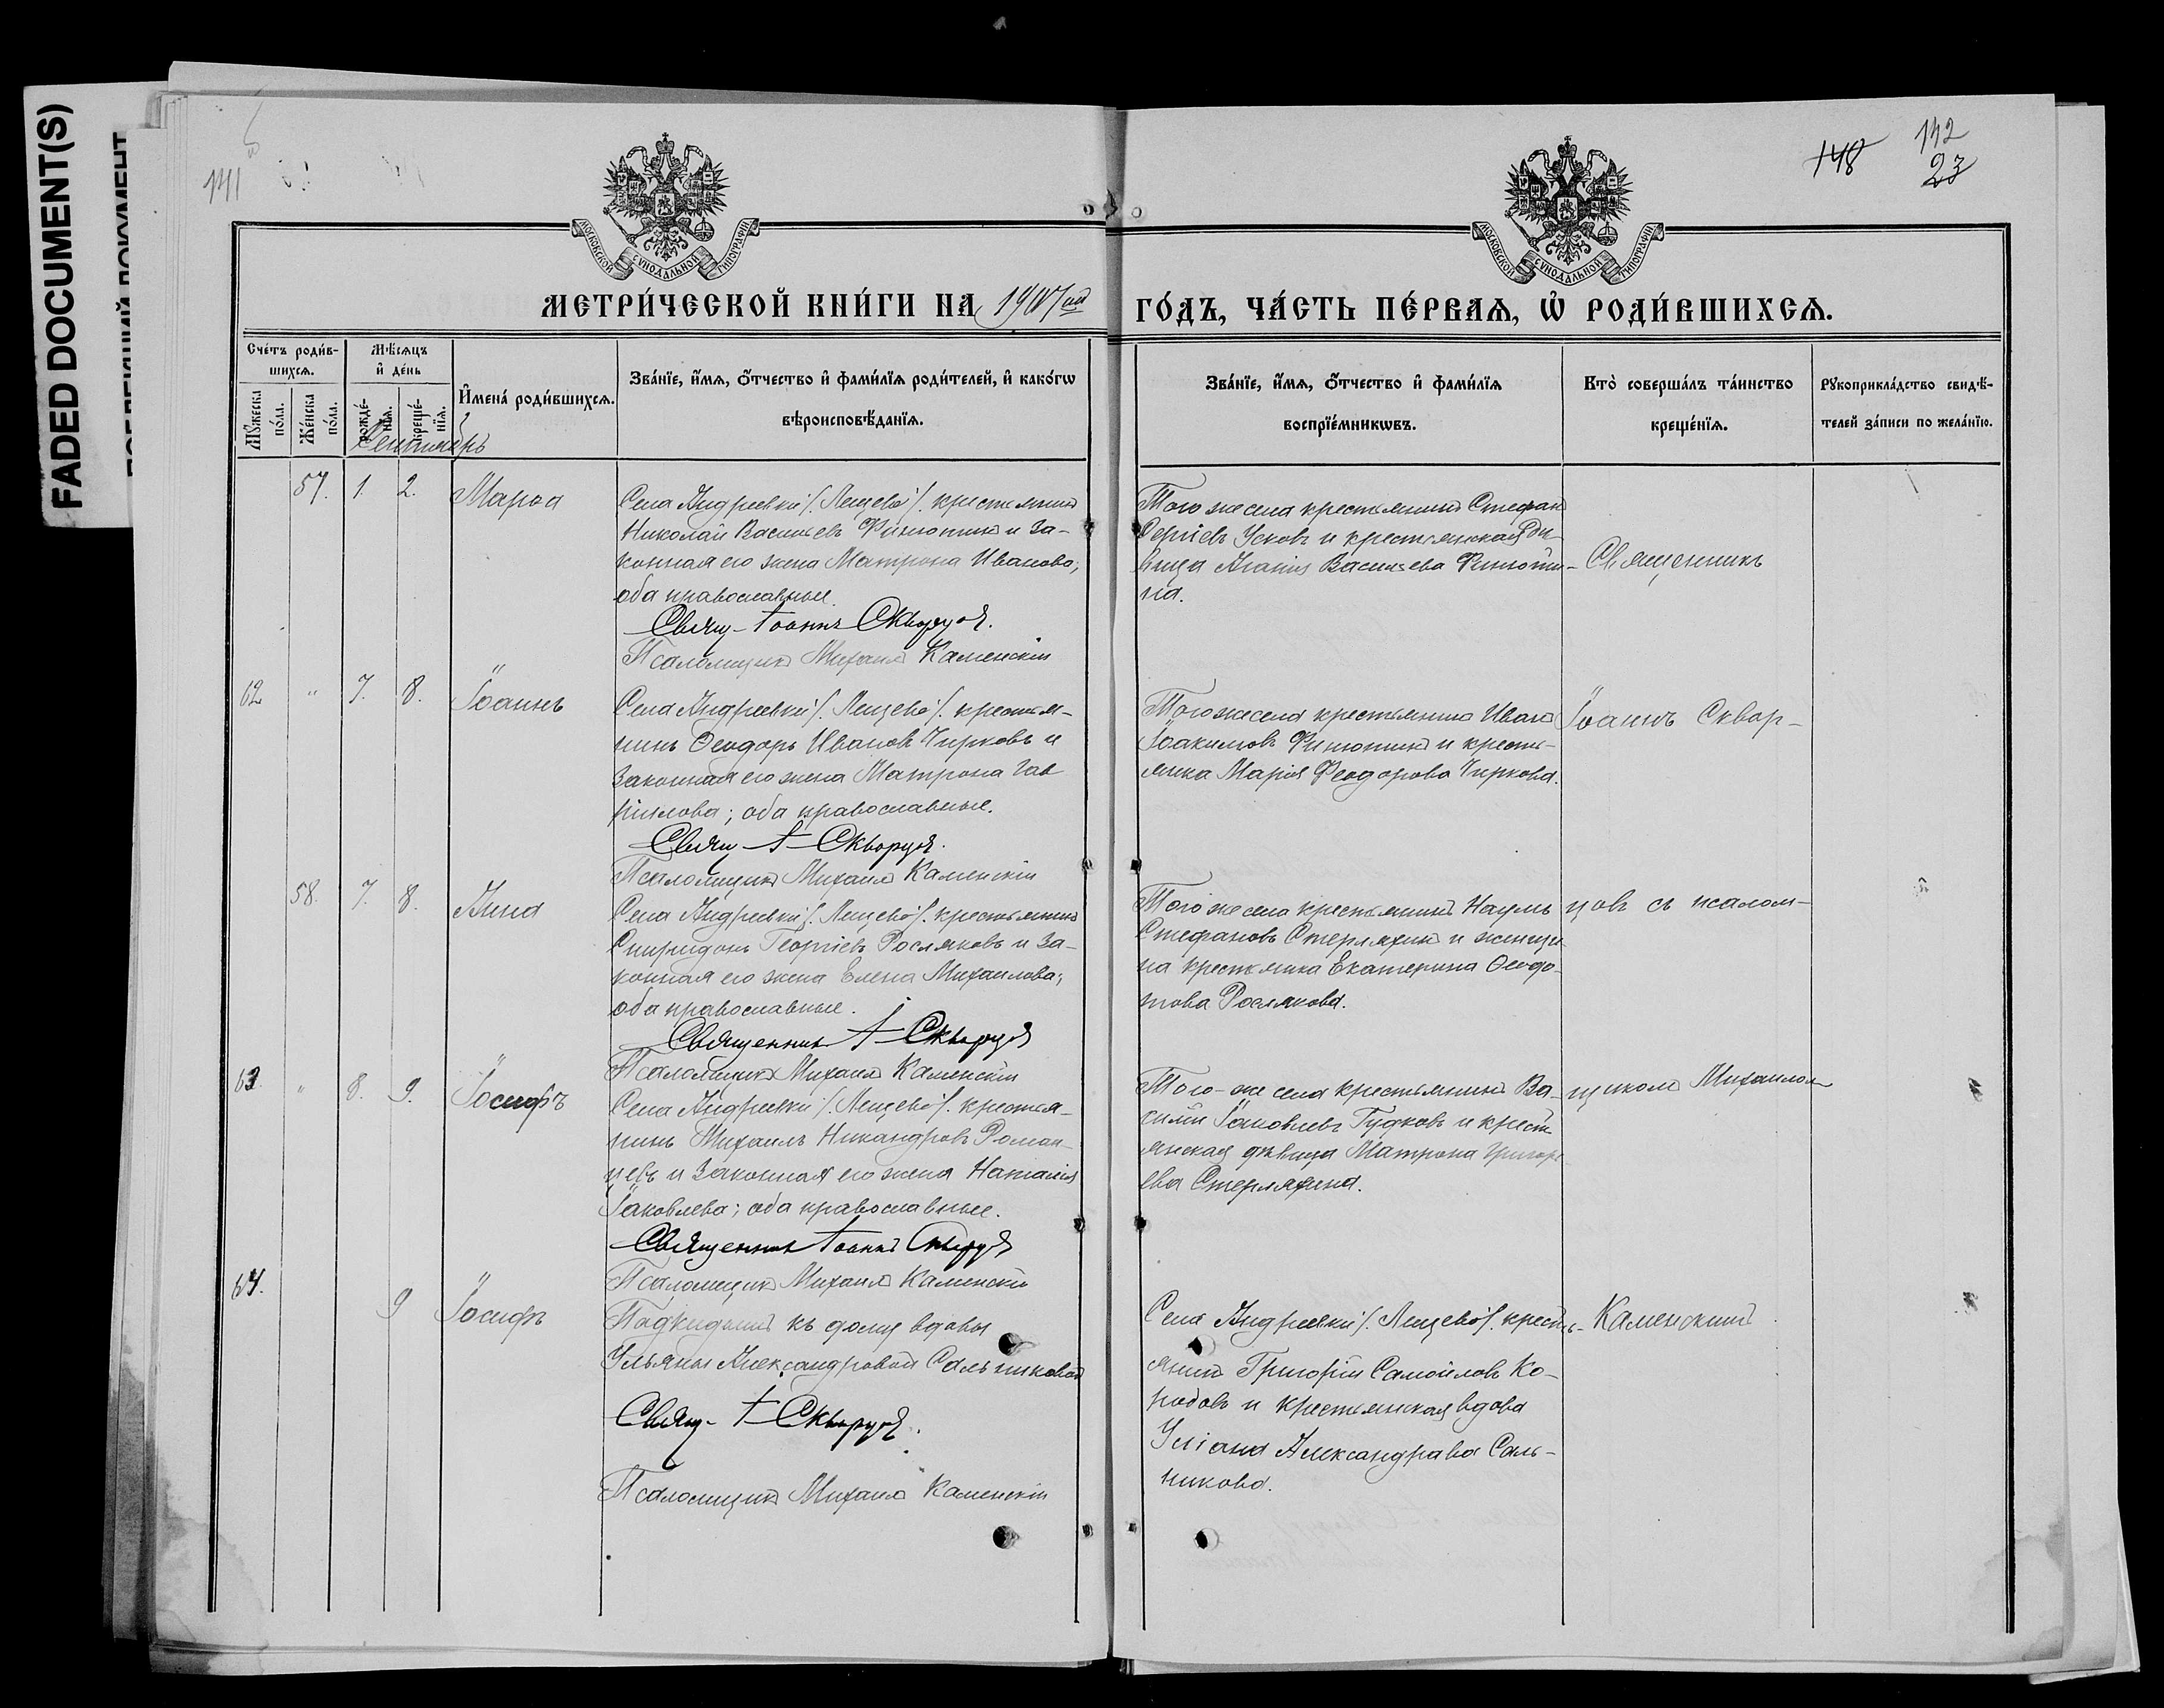 FADED DOCUMENT(S)
141
148
142
23
МОСКОВСКОЙ СѴНОДАЛЬНОЙ ТИПОГРАФІИ
МОСКОВСКОЙ СѴНОДАЛЬНОЙ ТИПОГРАФІИ
МЕТРИ́ЧЕСКОЙ КНИ́ГИ НА
ГО́ДЪ, ЧА́СТЬ ПЕ́РВАѦ, Ѡ҆ РОДИ́ВШИХСѦ.
Сче́тъ роди́в-
шихсѧ.
Мѣ́сѧцъ
и҆ де́нь
Мꙋ́жеска
по́ла.
Же́нска
по́ла.
рожде́-
нїѧ.
креще́-
нїѧ.
И҆мена̀ роди́вшихсѧ.
Зва́нїе, и҆́мѧ, ѻ҆́тчество и҆ фами́лїѧ роди́телей, и҆ како́гѡ
вѣроисповѣ́данїѧ.
Зва́нїе, и҆́мѧ, ѻ҆́тчество и҆ фами́лїѧ
воспрїе́мникѡвъ.
Кто̀ соверша́лъ та́инство
креще́нїѧ.
Рꙋкоприкла́дство свидѣ́-
телей за́писи по жела́нїю.
Сентябрь
57. 1. 2. Марѳа
Села Андреевки /. Лещево /. крестьянинъ
Николай Васильевъ Финютинъ и за-
конная его жена Матрона Иванова;
оба православные.
Свящ. Іоаннъ Скворцовъ.
Псаломщикъ Михаилъ Каменскій
Того же села крестьянинъ Стефанъ
Сергіевъ Усковъ и крестьянская дѣ-
вица Агаѳія Васильева Финюти-
на.
Священникъ
62 " 7. 8. Іоаннъ
Села Андреевки /. Лещево /. крестья-
нинъ Ѳеодоръ Ивановъ Чирковъ и
законная его жена Матрона Гав
риилова; оба православные.
Свящ. І. Скворцовъ.
Псаломщикъ Михаилъ Каменскій
Того же села крестьянинъ Иванъ
Іоакимовъ Финютинъ и кресть-
янка Марія Ѳеодорова Чиркова.
Іоаннъ Сквор-
58. 7. 8. Анна
Села Андреевки /. Лещево /. крестьянинъ
Спиридонъ Георгіевъ Росляковъ и за-
конная его жена Елена Михаилова;
оба православные.
Священникъ І. Скворцовъ
Псаломщикъ Михаилъ Каменскій
Того же села крестьянинъ Наумъ
Стефановъ Стерляхинъ и
на крестьянка Екатерина Ѳеодо-
това Рослякова.
цовъ съ псалом-
63 " 8. 9. Іосифъ
Села Андреевки /. Лещево /. крестья-
нинъ Михаилъ Никандровъ Роман-
цевъ и законная его жена Наталія
Іаковлева; оба православные.
Священникъ Іоаннъ Скворцовъ
Псаломщикъ Михаилъ Каменскій
Того-же села крестьянинъ Ва-
силій Іаковлевъ Гудковъ и кресть
янская дѣвица Матрона Григорь
ева Стерляхина.
щикомъ Михаиломъ
64. 9 Іосифъ
Подкидышъ къ дому вдовы
Ульяны Александровой Сальниковой
Свящ. І. Скворцовъ.
Псаломщикъ Михаилъ Каменскій
Села Андреевки /. Лещево /. кресть-
янинъ Григорій Самойловъ Ко-
робовъ и крестьянская вдова
Уліана Александрова Саль-
никова.
Каменскимъ